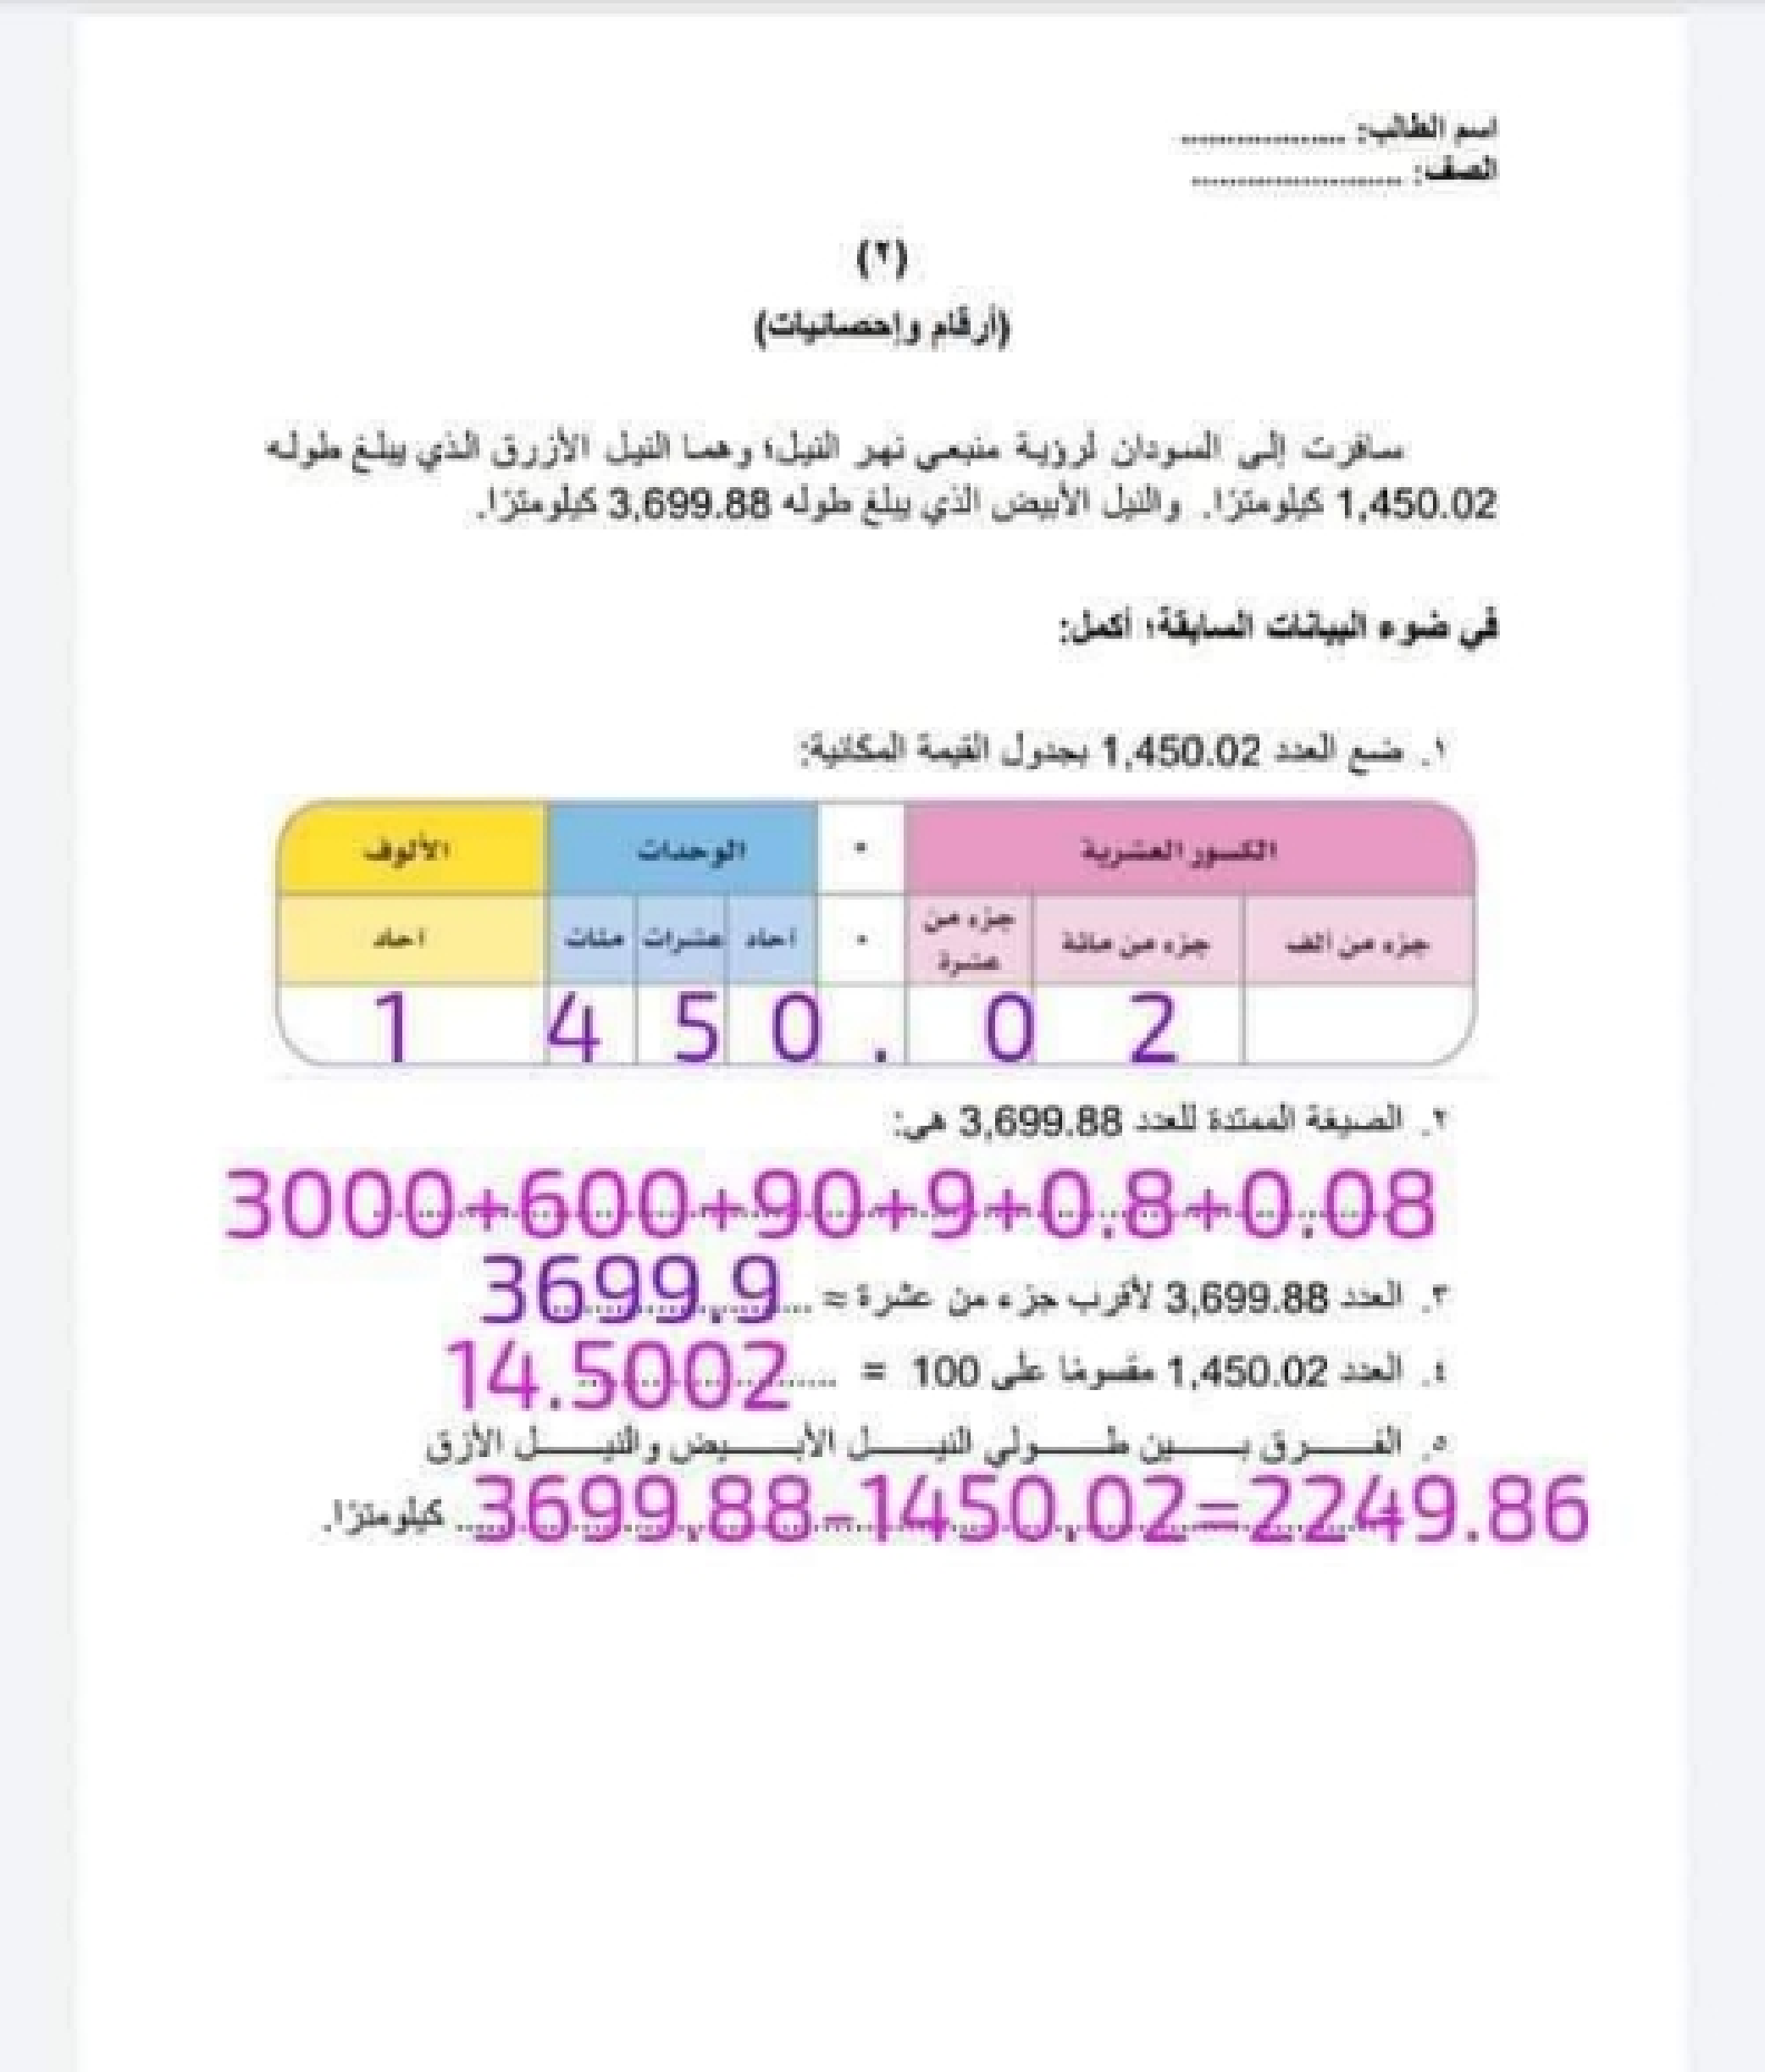 اسم الطالب: ....................
الصف: ..........................
(٢)
(أرقام وإحصائيات)
سافرت إلى السودان لرؤية منبعي نهر النيل؛ وهما النيل الأزرق الذي يبلغ طوله
1,450.02 كيلومترًا. والنيل الأبيض الذي يبلغ طوله 3,699.88 كيلومترًا.
في ضوء البيانات السابقة؛ أكمل:
١. ضع العدد 1,450.02 بجدول القيمة المكانية:
الألوف الوحدات . الكسور العشرية
آحاد مئات عشرات آحاد . جزء من عشرة جزء من مائة جزء من ألف
1 4 5 0 . 0 2
٢. الصيغة الممتدة للعدد 3,699.88 هي:
3000+600+90+9+0.8+0.08
٣. العدد 3,699.88 لأقرب جزء من عشرة ≈ 3699.9
٤. العدد 1,450.02 مقسومًا على 100 = 14.5002
٥. الفرق بين طولي النيل الأبيض والنيل الأزق
3699.88-1450.02=2249.86 كيلومترًا.